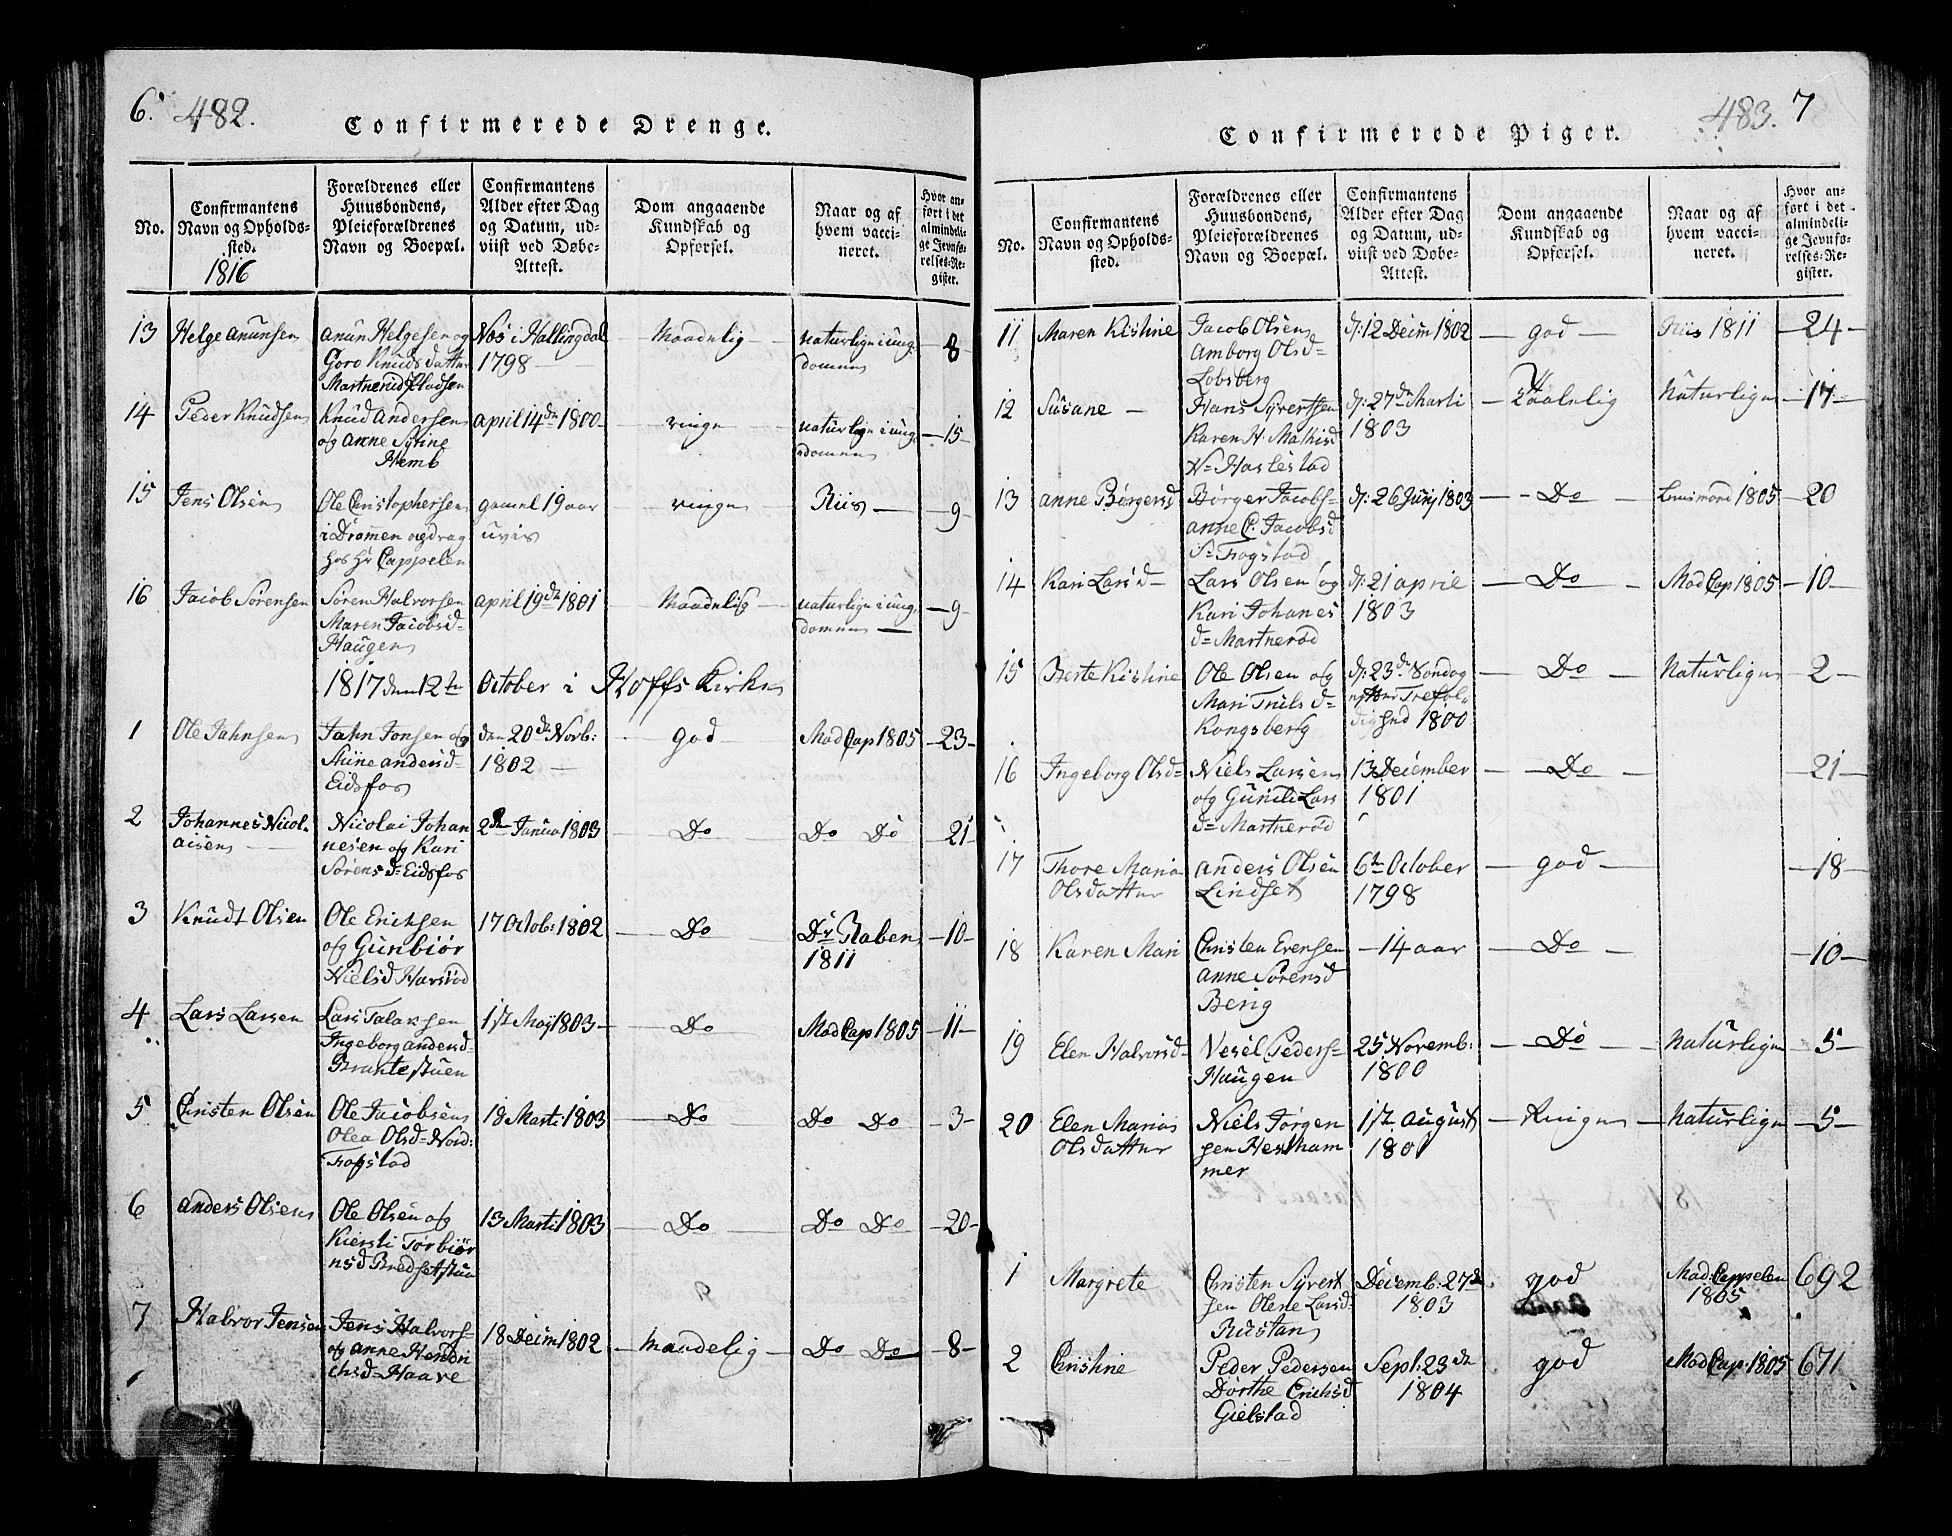 6. 482.
Confirmerede Drenge.
No.
Confirmantens Navn og Opholds-sted.
1816
Forældrenes eller Huusbondens, Pleieforældrenes Navn og Boepæl.
Confirmantens Alder efter Dag og Datum, ud-viist ved Døbe-Attest.
Dom angaaende Kundskab og Opførsel.
Naar og af hvem vacci-neret.
Hvor an-ført i det almindeli-ge Jevnfø-relses-Re-gister.
13 Helge Anunsen Anun Helgesen og Nos i Hallingdal Maadelig naturlige i ung 8
Goro Knudsdatter 1798 domen
Martnerud
14 Peder Knudsen Knud Andersen April 14de 1800 ringe naturlige i ung 15
og Anne domen
Hemb
15 Jens Olsen Ole Christophersen gamel 19 aar ringe Riis 9
i Dramen opdrag uvis
hos Hr Cappelen
16 Jacob Sørensen Søren Halvorsen April 19de 1801 Maadelig naturlige i ung 9
Maren Jacobsd= domen
Haugen
1817 den 12te October i Hoffs Kirke
1 Ole Jahnsen Jahn Jonsen og den 20de Novb: god Mad Cap 1805 23
Andersd= 1802
Eidsfos
2 Johannes Nicol Nicolai Johan 2d Janua 1803 Do Do Do 21
aisen nesen og Kari
Sørensd= Eidsfos
3 Knudt Olsen Ole Ericksen 17 Octob: 1802 Do Dr Raben 10
og Gunbiør 1811
Nielsd Harstod
4 Lars Larsen Lars Talaksen 1st Maj 1803 Do Mad Cap 1805 11
Ingeborg Andersd=
Brantestuen
5 Christen Olsen Ole Jacobsen 18 Marti 1803 Do Do Do 3
Olea Olsd= Nord:
Fogstad
6 Anders Olsen Ole Olsen og 13 Marti 1803 Do Do Do 20
Kiersti Torbiør
nsd Bredsetstua
7 Halvor Jensen Jens Halvors= 18 Decim 1802 Maadelig Do Do 8
og Anne Hendri
chsd= Haare
483. 7
Confirmerede Piger.
No.
Confirmantens Navn og Opholds-sted.
Forældrenes eller Huusbondens, Pleieforældrenes Navn og Boepæl.
Confirmantens Alder efter Dag og Datum, ud-viist ved Døbe-Attest.
Dom angaaende Kundskab og Opførsel.
Naar og af hvem vacci-neret.
Hvor an-ført i det almindeli-ge Jevnfø-relses-Re-gister.
11 Maren Kistine Jacob Olsen d: 12 Decim 1802 god Riis 1811 24
Amborg Olsd=
Lobsberg
12 Susane Hans Syvertsen d: 27de Marti Naturlige 17
Karen H. Mathisd 1803
N= Hastestad
13 Anne Børgersd Børger Jacobs= d: 26 Junj 1803 Do 1805 20
Anne C. Jacobsd
S= Fogstad
14 Kari Larsd= Lars Olsen og d: 21 April Do Mad Cap 1805 10
Kari Johanes 1803
d= Martnerød
15 Berte Kistine Ole Olsen og d: 23de Søndag Do Naturlige 2
Mari Truls d= efter Trefol=
Kongsberg dighed 1800
16 Ingeborg Olsd= Niels Larsen 13 December Do 21
og Gunild Lars 1801
d= Martnerød
17 Thore Maria Anders Olsen 6te October god 18
Olsdatter Lindset 1798
18 Karen Mari Christen Evensen 14 aar Do 10
Anne Sørensd
Berig
19 Elen Halvorsd= Vesel Peders= 25 Novemb: Do Naturlige 5
Haugen 1800
20 Elen Maria Niels Jørgen 1st August Ringe Naturlige 5
Olsdatter sen Hestham 1801
mer
1 Margrete Christen Syvert Decemb: 27de god Mad: Cappelen 692
sen Olene Larsd= 1803 1805
Rustan
2 Christine Peder Pedersen Sept: 23de god Mad Cap: 1805 671
Dorthe Erichsd 1804
Gielstad